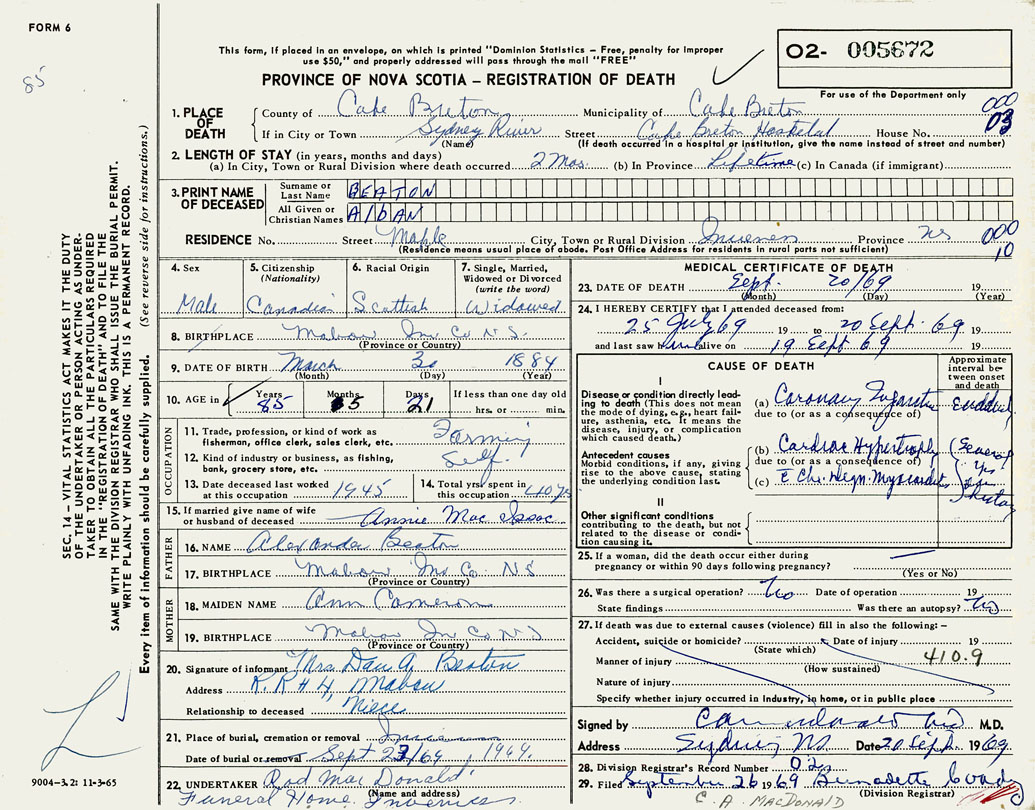 FORM 6
85
This form, if placed in an envelope, on which is printed "Dominion Statistics - Free, penalty for improper
use $50," and properly addressed will pass through the mail "FREE"
PROVINCE OF NOVA SCOTIA - REGISTRATION OF DEATH
O2- 005672
For use of the Department only
000
03
1. PLACE OF DEATH County of Cape Breton Municipality of Cape Breton
If in City or Town Sydney River Street Cape Breton Hospital House No.
(Name) (If death occurred in a hospital or institution, give the name instead of street and number)
2. LENGTH OF STAY (in years, months and days)
(a) In City, Town or Rural Division where death occurred 2 Mos. (b) In Province Lifetime (c) In Canada (if immigrant)
3. PRINT NAME OF DECEASED Surname or Last Name BEATON
All Given or Christian Names AIDAN
RESIDENCE No. Street Maple City, Town or Rural Division Inverness Province NS
000
10
(Residence means usual place of abode. Post Office Address for residents in rural parts not sufficient)
4. Sex Male
5. Citizenship (Nationality) Canadian
6. Racial Origin Scottish
7. Single, Married, Widowed or Divorced (write the word) Widowed
8. BIRTHPLACE Mabou Inv. Co N S.
(Province or Country)
9. DATE OF BIRTH March 30 1884
(Month) (Day) (Year)
10. AGE in Years 85 Months 5 Days 21 If less than one day old hrs. or min.
OCCUPATION
11. Trade, profession, or kind of work as fisherman, office clerk, sales clerk, etc. Farming
12. Kind of industry or business, as fishing, bank, grocery store, etc. Self.
13. Date deceased last worked at this occupation 1945
14. Total yrs. spent in this occupation 40 yrs
15. If married give name of wife or husband of deceased Annie Mac Isaac
FATHER
16. NAME Alexander Beaton
17. BIRTHPLACE Mabou Inv. Co. N S
(Province or Country)
MOTHER
18. MAIDEN NAME Ann Cameron
19. BIRTHPLACE Mabou Inv Co N S
(Province or Country)
20. Signature of informant Mrs Dan A Beaton
Address R. R # 4, Mabou
Relationship to deceased Niece
21. Place of burial, cremation or removal Inverness
Date of burial or removal Sept 23/69 1969.
22. UNDERTAKER Rod Mac Donald
(Name and address)
Funeral Home Inverness.
MEDICAL CERTIFICATE OF DEATH
23. DATE OF DEATH Sept. 20/69 19
(Month) (Day) (Year)
24. I HEREBY CERTIFY that I attended deceased from:
25 July 69 19 to 20 Sept. 69 19
and last saw him alive on 19 Sept 69 19
CAUSE OF DEATH
Approximate interval between onset and death
I
Disease or condition directly leading to death (This does not mean the mode of dying, e.g., heart failure, asthenia, etc. It means the disease, injury, or complication which caused death.)
(a) Coronary Infarction
due to (or as a consequence of)
Antecedent causes
Morbid conditions, if any, giving rise to the above cause, stating the underlying condition last.
(b) Cardiac Hypertrophy Several
due to (or as a consequence of)
(c) c Chr. Degn. Myocarditis
II
Other significant conditions
contributing to the death, but not related to the disease or condition causing it.
25. If a woman, did the death occur either during pregnancy or within 90 days following pregnancy? —
(Yes or No)
26. Was there a surgical operation? No Date of operation 19
State findings Was there an autopsy? No
27. If death was due to external causes (violence) fill in also the following: -
Accident, suicide or homicide? Date of injury 19
(State which)
410.9
Manner of injury
(How sustained)
Nature of injury
Specify whether injury occurred in industry, in home, or in public place
Signed by M.D.
Address Sydney NS. Date 20 Sept. 1969
28. Division Registrar's Record Number
29. Filed September 26 1969 Bernadette
(Division Registrar)
C. A. MACDONALD
SEC. 14 - VITAL STATISTICS ACT MAKES IT THE DUTY
OF THE UNDERTAKER OR PERSON ACTING AS UNDER-
TAKER TO OBTAIN ALL THE PARTICULARS REQUIRED
IN THE "REGISTRATION OF DEATH" AND TO FILE THE
SAME WITH THE DIVISION REGISTRAR WHO SHALL ISSUE THE BURIAL PERMIT.
WRITE PLAINLY WITH UNFADING INK. THIS IS A PERMANENT RECORD.
Every item of information should be carefully supplied. (See reverse side for instructions.)
9004-3.2: 11-3-65